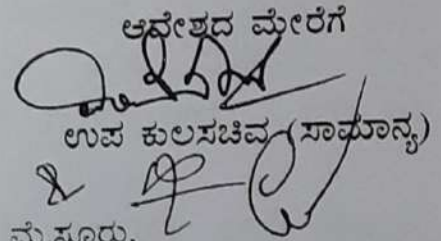 ಆದೇಶದ ಮೇರೆಗೆ
ಉಪ ಕುಲಸಚಿವ (ಸಾಮಾನ್ಯ)
ಮೈಸೂರು.